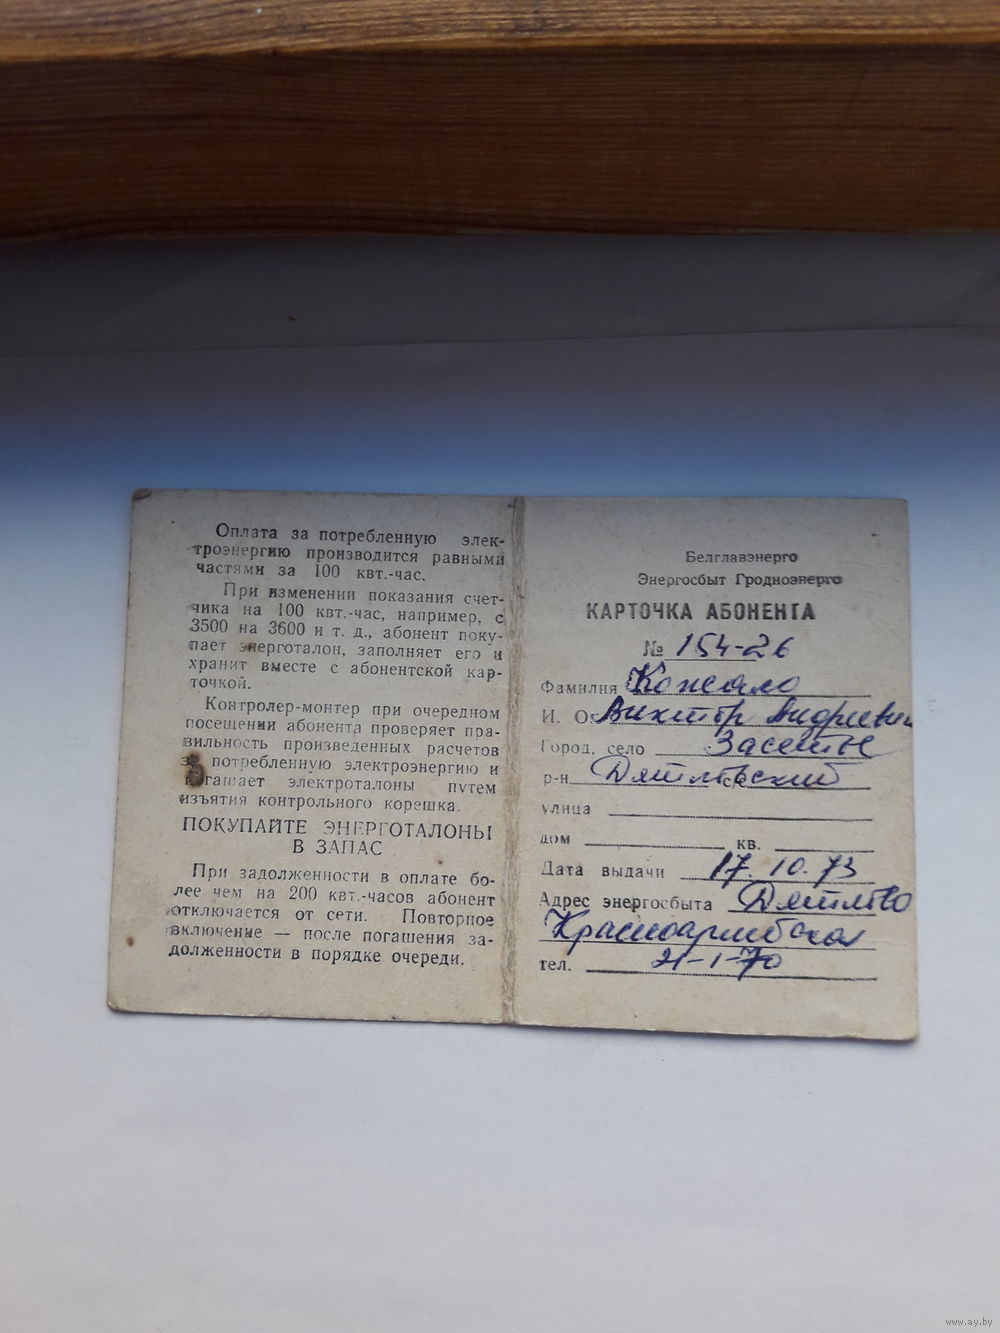 Оплата за потребленную элек-
троэнергию производится равными
частями за 100 квт.-час.
При изменении показания счет-
чика на 100 квт.-час, например, с
3500 на 3600 и т. д., абонент поку-
пает энерготалон, заполняет его и
хранит вместе с абонентской кар-
точкой.
Контролер-монтер при очередном
посещении абонента проверяет пра-
вильность произведенных расчетов
за потребленную электроэнергию и
погашает электроталоны путем
изъятия контрольного корешка.
ПОКУПАЙТЕ ЭНЕРГОТАЛОНЫ
В ЗАПАС
При задолженности в оплате бо-
лее чем на 200 квт.-часов абонент
отключается от сети. Повторное
включение — после погашения за-
долженности в порядке очереди.
Белглавэнерго
Энергосбыт Гродноэнерго
КАРТОЧКА АБОНЕНТА
№ 154-26
Фамилия
И. О. Виктор Андреевич
Город, село Засетье
р-н Дятловский
улица
дом кв.
Дата выдачи 17.10.73
Адрес энергосбыта Дятлово
Красноармейская
тел. 21-1-70
www.ay.by